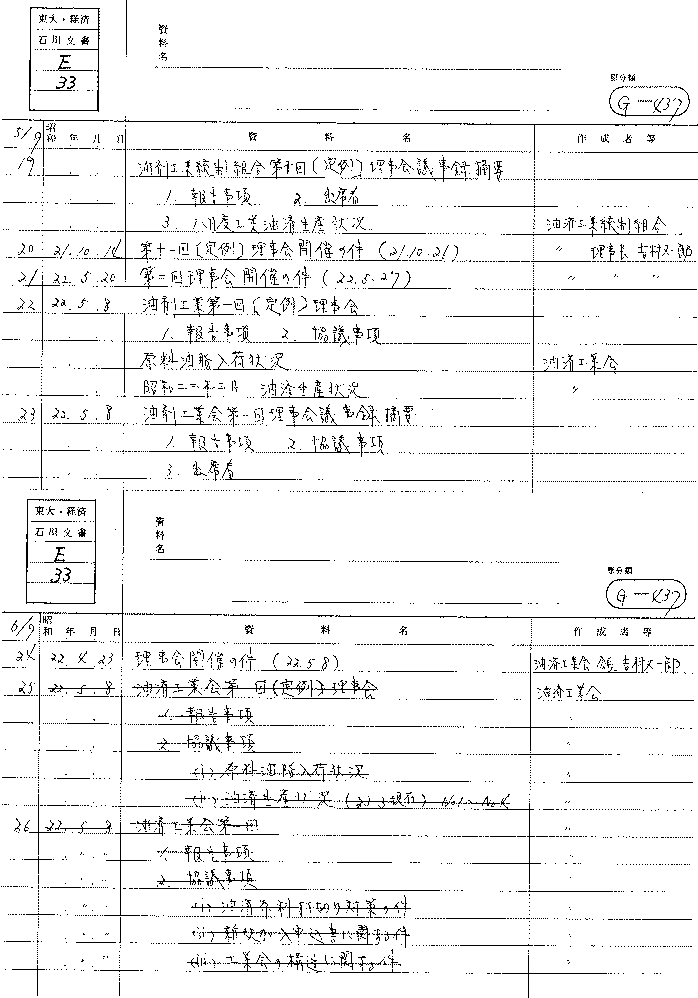 東大・経済
石川文書
E
33
資料名
票分類
G-437
5/9 昭和 年 月 日 資料名 作成者等
19 油剤工業統制組合第十回(定例)理事会議事録摘要
1. 報告事項 2. 出席者
3. 八月度工業油済生産状況 油済工業統制組合
20 21.10.14 第十一回(定例)理事会開催の件 (21.10.21) 〃 理事長 吉村又一郎
21 22.5.20 第二回理事会開催の件 (22.5.27) 〃 〃 〃
22 22.5.8 油剤工業第一回(定例)理事会
1. 報告事項 2. 協議事項
原料油脂入荷状況 油済工業会
昭和二二年三月 油済生産状況 〃
23 22.5.8 油剤工業会第一回理事会議事録摘要
1. 報告事項 2. 協議事項
3. 出席者
東大・経済
石川文書
E
33
資料名
票分類
G-437
6/9 昭和 年 月 日 資料名 作成者等
24 22.4.23 理事会開催の件 (22.5.8) 油済工業会 会長 吉村又一郎
25 22.5.8 油済工業会第一回(定例)理事会 油済工業会
1. 報告事項 〃
2. 協議事項 〃
(i) 原料油脂入荷状況 〃
(ii) 油済生産状況 (22.3現在) No.1~No.4 〃
26 22.5.8 油済工業会第一回 〃
〃 〃 1. 報告事項 〃
〃 〃 2. 協議事項 〃
〃 〃 (i) 油済原料打切り対策の件 〃
〃 〃 (ii) 新規加入申込書に関する件 〃
〃 〃 (iii) 工業会の構造に関する件 〃